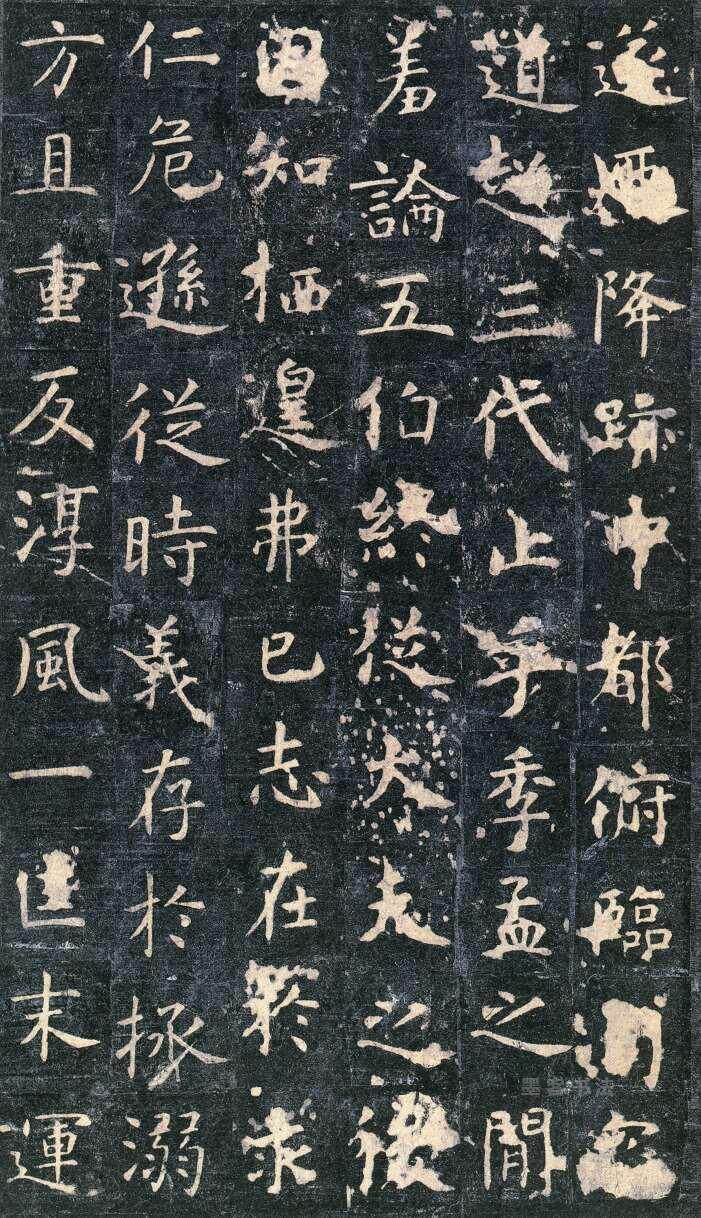 遂迺降跡中都俯臨司寇
道超三代止乎季孟之閒
羞論五伯終從大夫之後
固知栖遑弗已志在於求
仁危遜從時義存於拯溺
方且重反淳風一匡末運